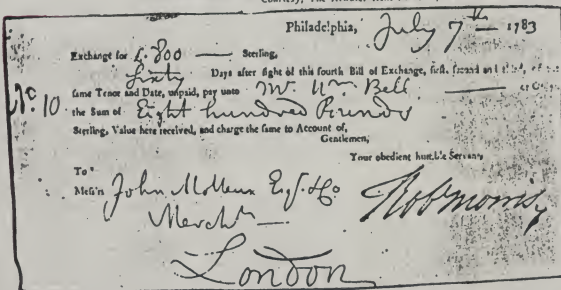 Philadelphia, July 7th — 1783
Exchange for £.800 — Sterling,
Sixty Days after sight of this fourth Bill of Exchange, first, second and third, of the
same Tenor and Date, unpaid, pay unto Mr. Wm Bell —— or
No. 10 the Sum of Eight hundred Pounds
Sterling, Value here received, and charge the same to Account of,
Gentlemen,
Your obedient humble Servant,
To
Mess'rs John Molleux Esqr. & Co
Robt Morris
Merchts —
London